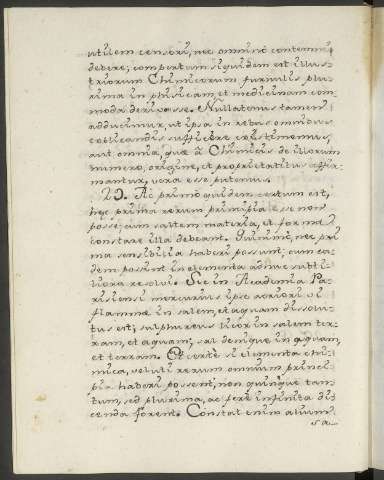 utilem censeri, nec omninò contemni
debere; compertum siquidem est illus-
triorum Chimicorum furnulis plu-
rima in phisicam, et medicinam com-
moda derivasse. Nullatenus tamen
adducimur, ut ipsa in rebus omnibus
explicandis sufficere existimemus,
aut omnia, quæ à Chimicis de illorum
numero, origine, et proprietatibus affir-
mantur, vera esse putemus.
Ac primò quidem certum est,
hæc prima rerum principia esse non
posse, cum saltem materia, et forma
constare illa debeant. Quinimò, nec pri-
ma sensibilia haberi possunt, cum ea-
dem possint in elementa adhuc subti-
liora resolvi. Sic in Academia Pa-
risiensi mercurius ipse acriori vi
flammæ in salem, et aquam dissolu-
tus est; sulphureus licor in salem ter-
ram, et aquam; sal denique in aquam,
et terram. Et certè si elementa chi-
mica, veluti rerum omnium princi-
pia haberi possent; non quinque tan-
tum, sed plurima, ac ferè infinita di-
cenda forent. Constat enim alium
sa-